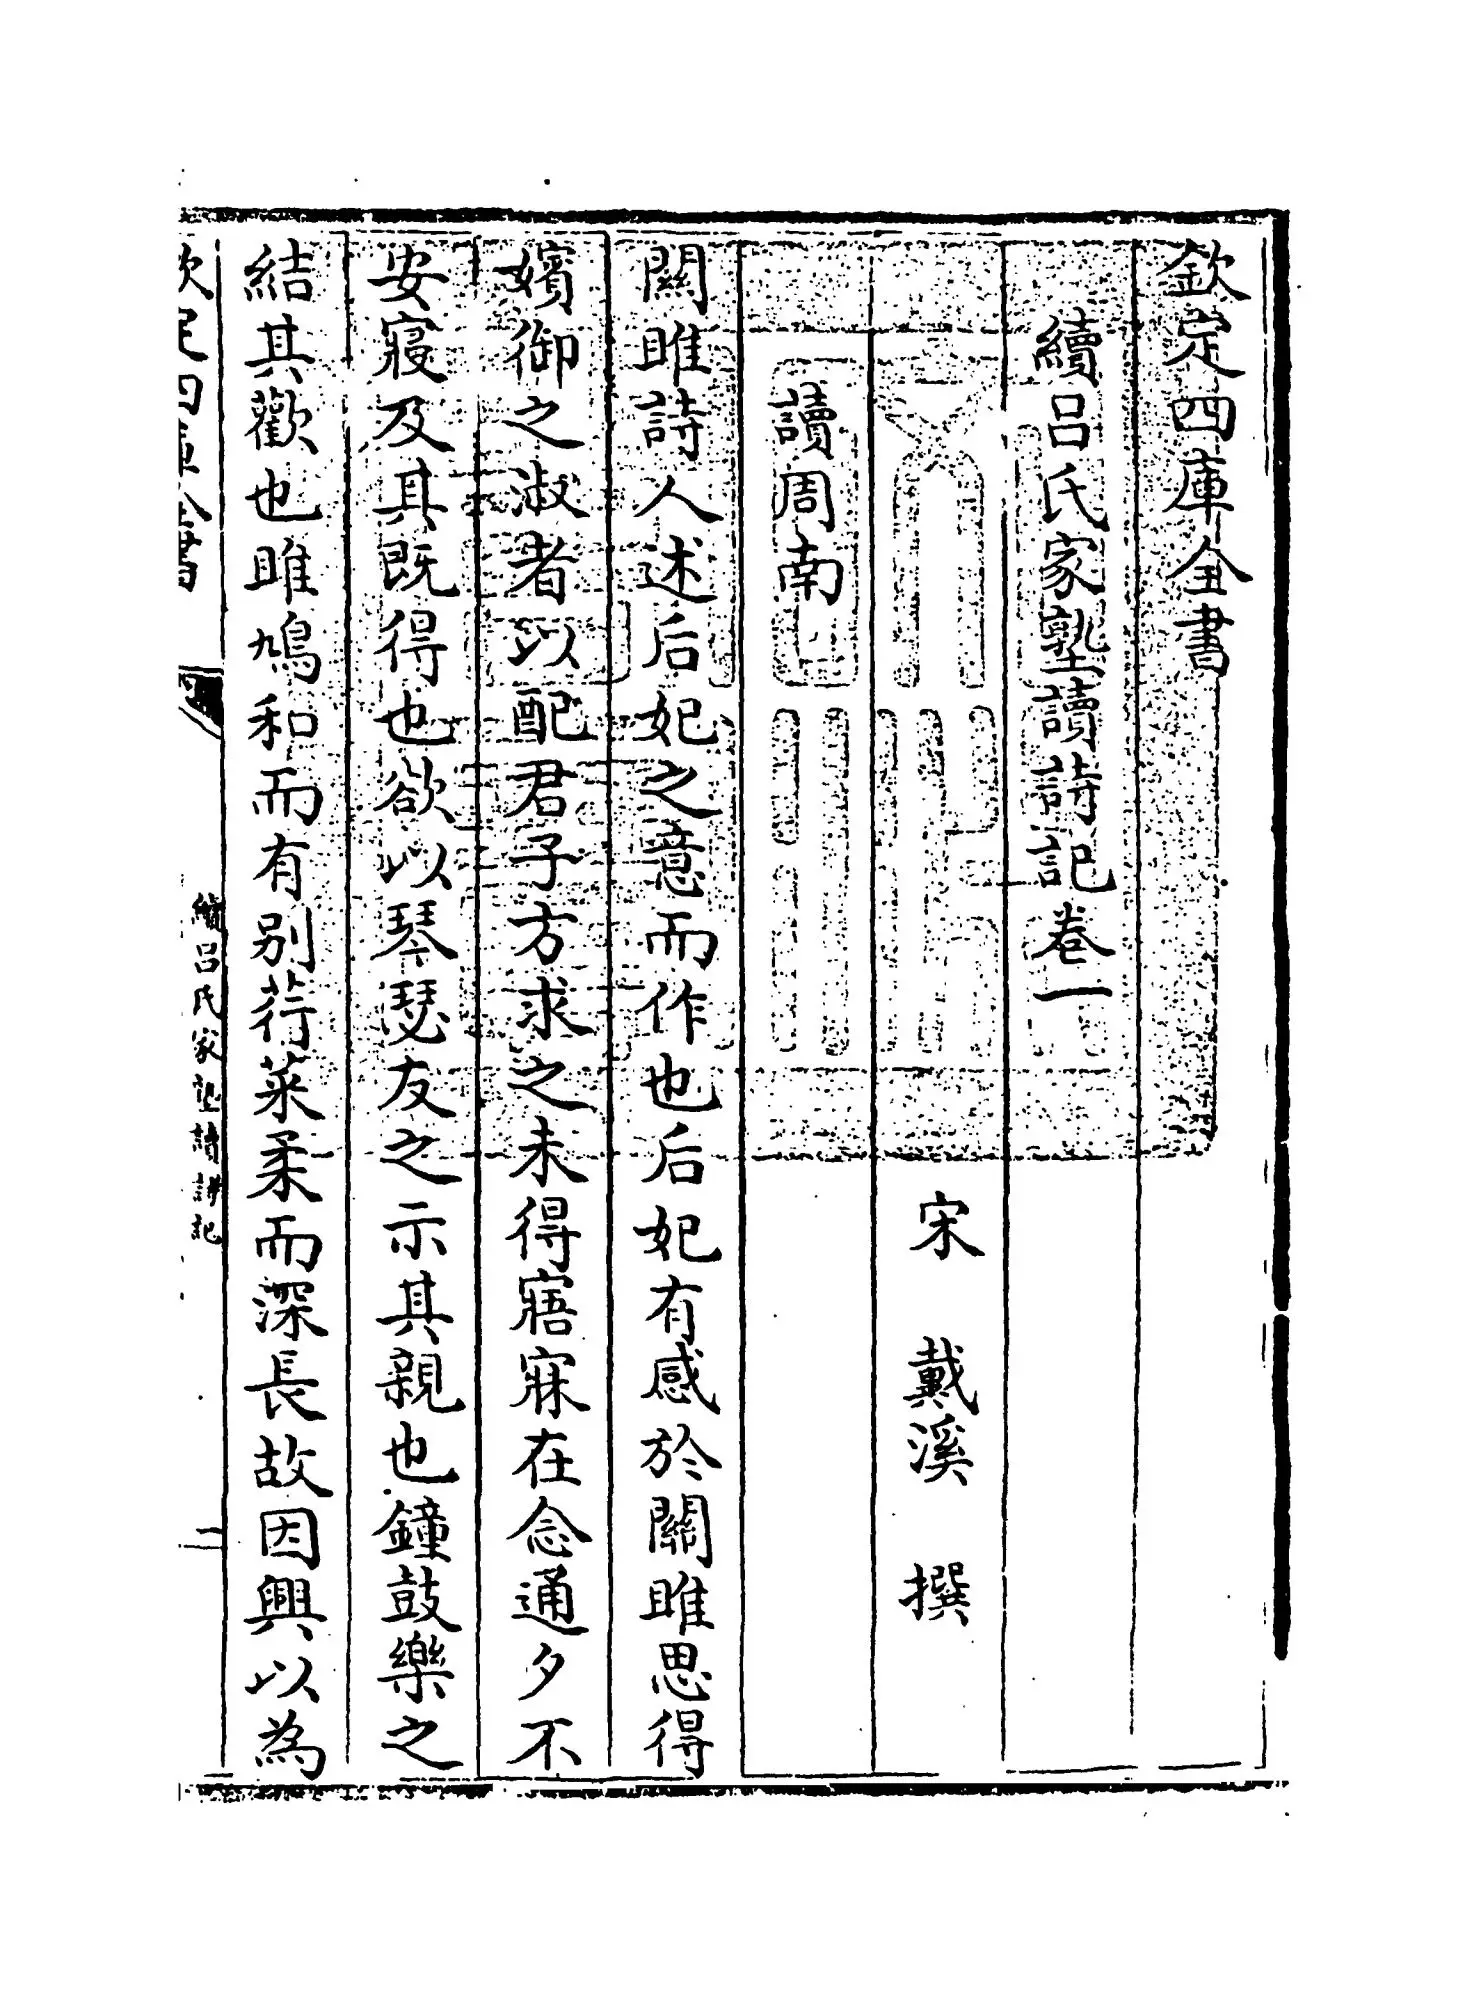 欽定四庫全書
續呂氏家塾讀詩記卷一
宋 戴溪 撰
讀周南
關雎詩人述后妃之意而作也后妃有感於關雎思得
嬪御之淑者以配君子方求之未得寤寐在念通夕不
安寢及其既得也欲以琴瑟友之示其親也鐘鼓樂之
結其歡也雎鳩和而有别荇菜柔而深長故因興以為
欽定四庫全書
續呂氏家塾讀詩記
一